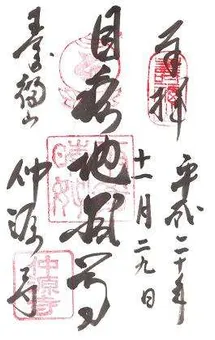 奉拝
平成二十年
十一月二九日
目疾地蔵尊
壽福山
仲源寺
仲源寺